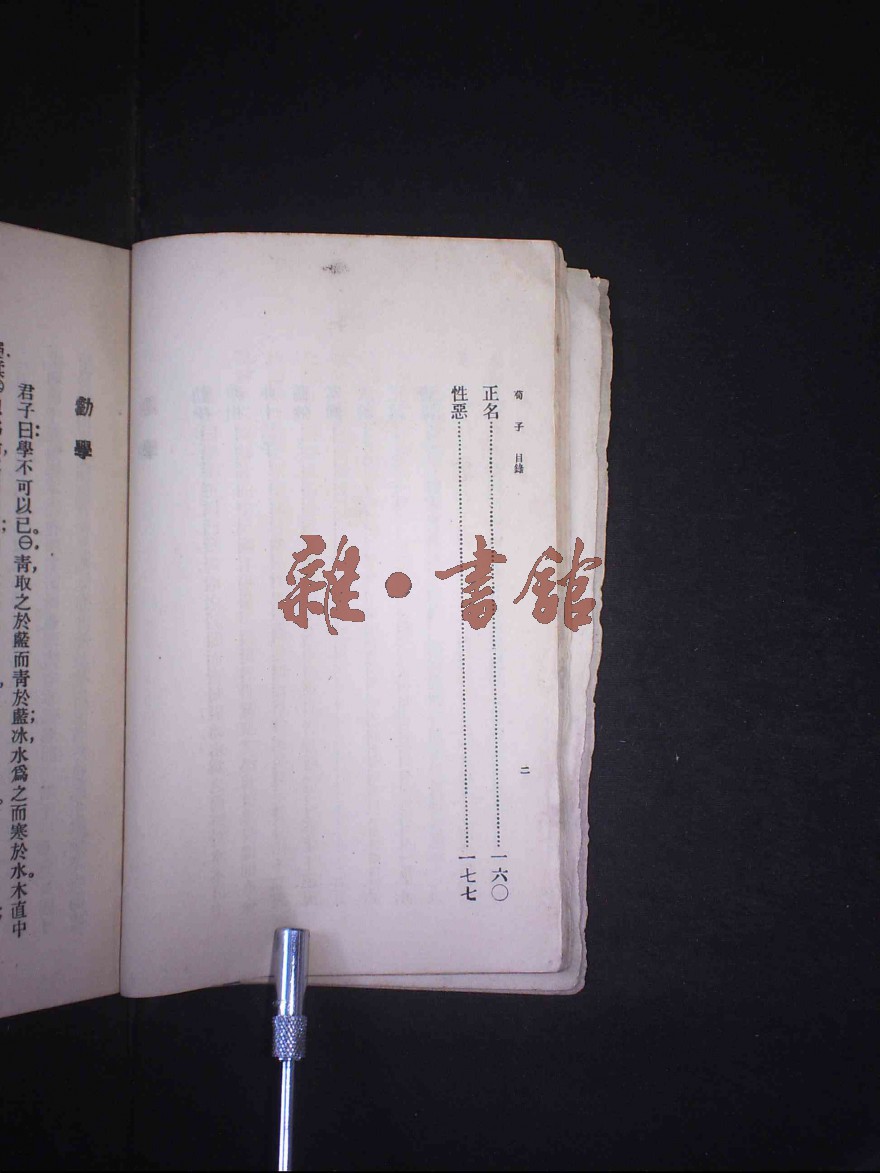 荀子 目錄
二
正名……一六〇
性惡……一七七
勸學
君子曰：學不可以已。㊀青，取之於藍而青於藍；冰，水爲之而寒於水。木直中
雜·書館